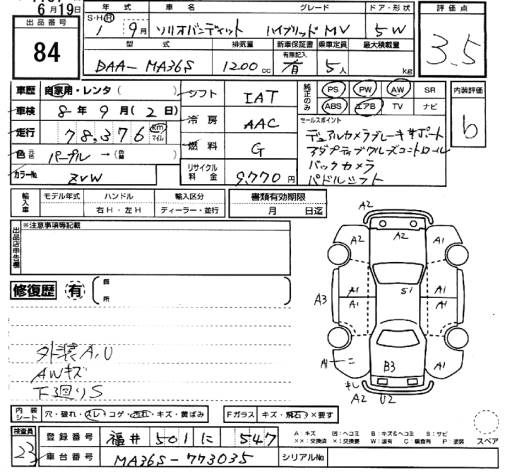 6月19日
出品番号
84
年式 車名 グレード ドア・形状
S・H・R 1年 9月 ソリオバンディット ハイブリッドMV 5W
型式 排気量 新車保証書 乗車定員 最大積載量
有無記入
DAA-MA36S 1200cc 有 5人 kg
評価点
3.5
車歴 自家用・レンタ( )
車検 8年9月(2日)
走行 78,376 km マイル
色 元色 パープル→ 色替
カラーNo ZVW
シフト IAT
冷房 AAC
燃料 G
リサイクル料金 9,770円
純正のみ
PS PW AW SR
ABS エアB TV ナビ
内装評価
b
セールスポイント
デュアルカメラブレーキサポート
アダプティブクルーズコントロール
バックカメラ
パドルシフト
輸入車
モデル年式 ハンドル 輸入区分
年 右H・左H ディーラー・並行
書類有効期限
月 日迄
出品店申告欄
※注意事項等記載
修復歴 有 ( 箇所
外装A,U
AWキズ
下廻りS
A2 A2
A2 A1
A1 A1
A3 S1
A1 A1
A1 B3 A1
キレ A2 U2
内装シート 穴・破れ・スレ・コゲ・汚れ・キズ・黄ばみ
Fガラス キズ・飛石・×要す
スペア
検査員
23
登録番号 福井 501 に 547
車台番号 MA36S-773035
シリアルNo
A:キズ U:ヘコミ B:キズ&ヘコミ S:サビ
××:交換済 ×:交換要 W:波有 C:腐食有 P:塗装